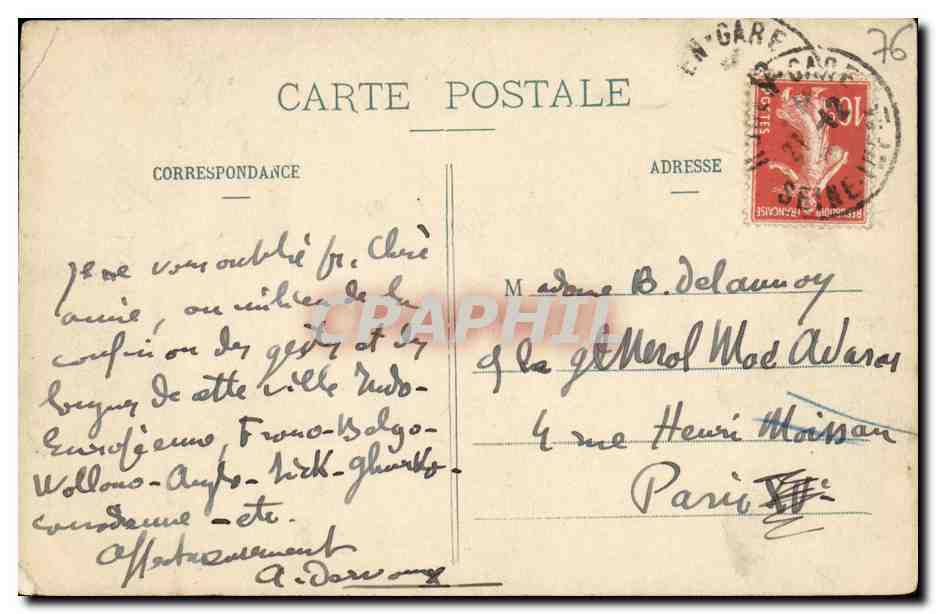 76
EN-GARE
GARE
SEINE-INF
10
POSTES
REPUBLIQUE FRANÇAISE
CARTE POSTALE
CORRESPONDANCE
ADRESSE
Je ne vous oublie pas, Chère
amie, au milieu de la
confusion des gestes et des
langues de cette ville Indo-
Européenne, Franco-Belgo-
Wallono-Anglo-Sick-Ghurko-
canadienne - etc.
Affectueusement
Madame B. Delaunoy
4 rue Henri Moissan
Paris XVe
CPAPHIL